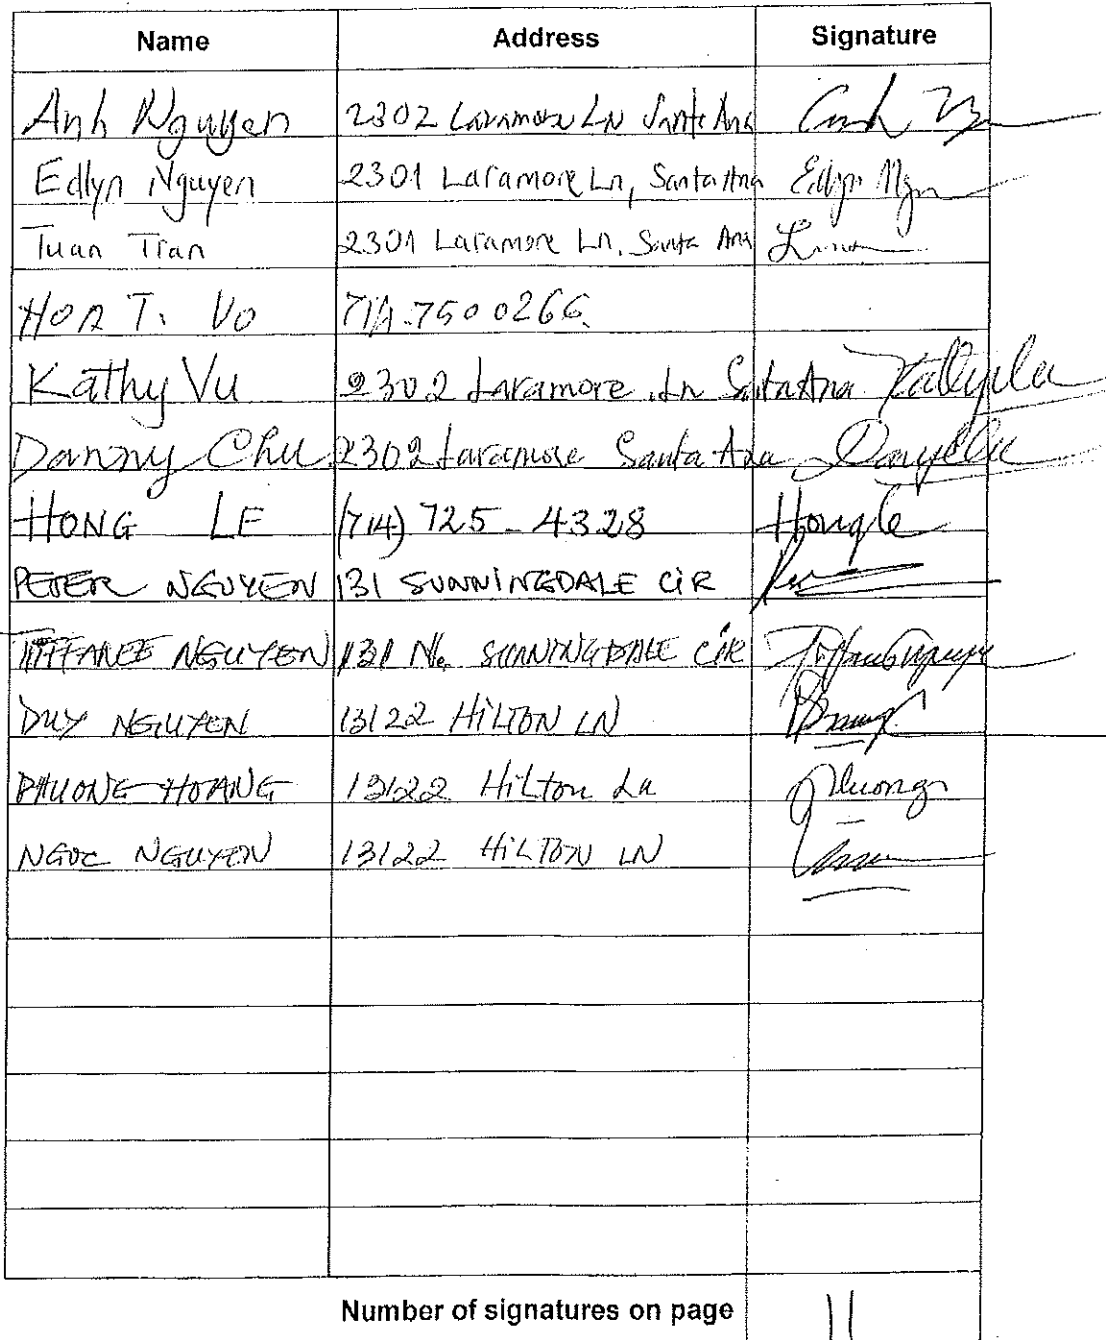 Name Address Signature
Anh Nguyen 2302 Laramore LN Santa Ana
Edlyn Nguyen 2301 Laramore Ln, Santa Ana
Tuan Tran 2301 Laramore Ln, Santa Ana
HOA T. VO 714-750 0266
Kathy Vu 2302 Laramore Ln Santa Ana
Danny Chu 2302 Laramore Santa Ana
HONG LE (714) 725-4328 Hongle
PETER NGUYEN 131 SUNNINGDALE CIR
TIFFANEE NGUYEN 131 N. SUNNINGDALE CIR
DUY NGUYEN 13122 HILTON LN
PHUONG HOANG 13122 Hilton Ln Phuong
NGOC NGUYEN 13122 HILTON LN
Number of signatures on page 11